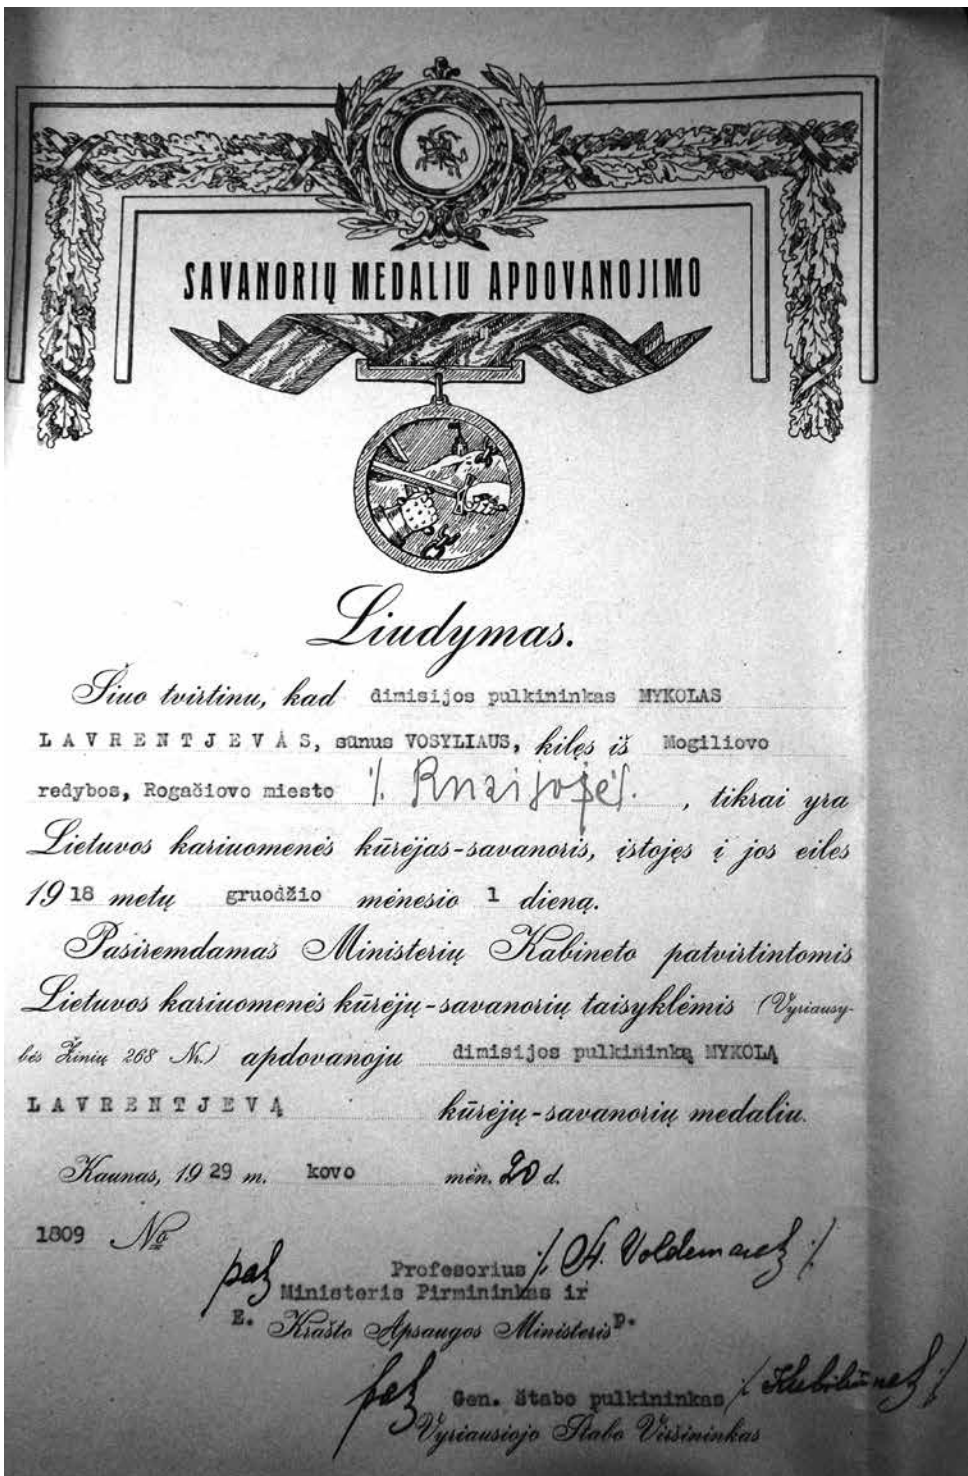 SAVANORIŲ MEDALIU APDOVANOJIMO
Liudymas.
Šiuo tvirtinu, kad dimisijos pulkininkas MYKOLAS
LAVRENTJEVAS, sūnus VOSYLIAUS, kilęs iš Mogiliovo
redybos, Rogačiovo miesto /. Rusijoje/. , tikrai yra
Lietuvos kariuomenės kūrėjas-savanoris, įstojęs į jos eiles
1918 metų gruodžio mėnesio 1 dieną.
Pasiremdamas Ministerių Kabineto patvirtintomis
Lietuvos kariuomenės kūrėjų-savanorių taisyklėmis (Vyriausy-
bės Žinių 268 Nr.) apdovanoju dimisijos pulkininką MYKOLĄ
LAVRENTJEVĄ kūrėjų-savanorių medaliu.
Kaunas, 1929 m. kovo mėn. 20 d.
1809 No
pas Profesorius /. A. Voldemaras /.
Ministeris Pirmininkas ir
E. Krašto Apsaugos Ministeris p.
pas Gen. štabo pulkininkas /. Kubiliūnas /.
Vyriausiojo Štabo Viršininkas